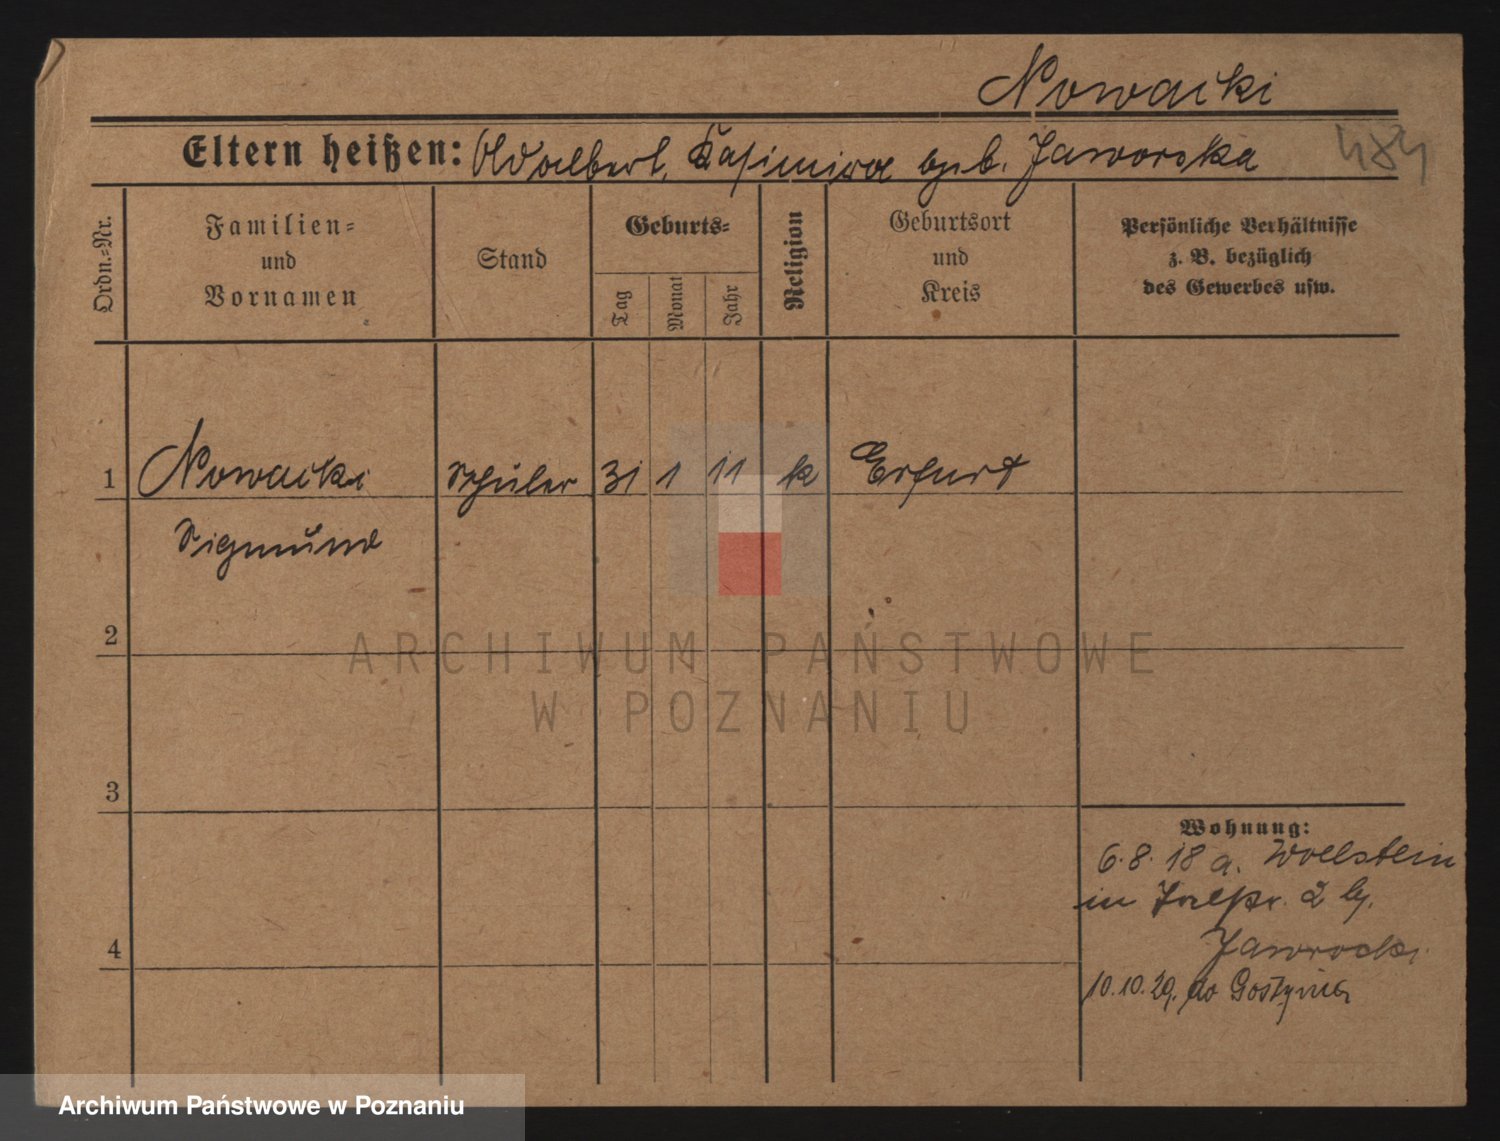 Nowacki
Eltern heißen: Adalbert, Kasimira geb. Jaworska
Ordn.=Nr.
Familien=
und
Vornamen
Stand
Geburts=
Tag
Monat
Jahr
Religion
Geburtsort
und
Kreis
Persönliche Verhältnisse
z. B. bezüglich
des Gewerbes usw.
1 Nowacki Schüler 31 1 11 k Erfurt
Sigmund
2
3
4
Wohnung:
6.8.18 a. Wollstein
in 2 b.
Jaworski
10.10.29. do Gostynia
ARCHIWUM PAŃSTWOWE
W POZNANIU
Archiwum Państwowe w Poznaniu